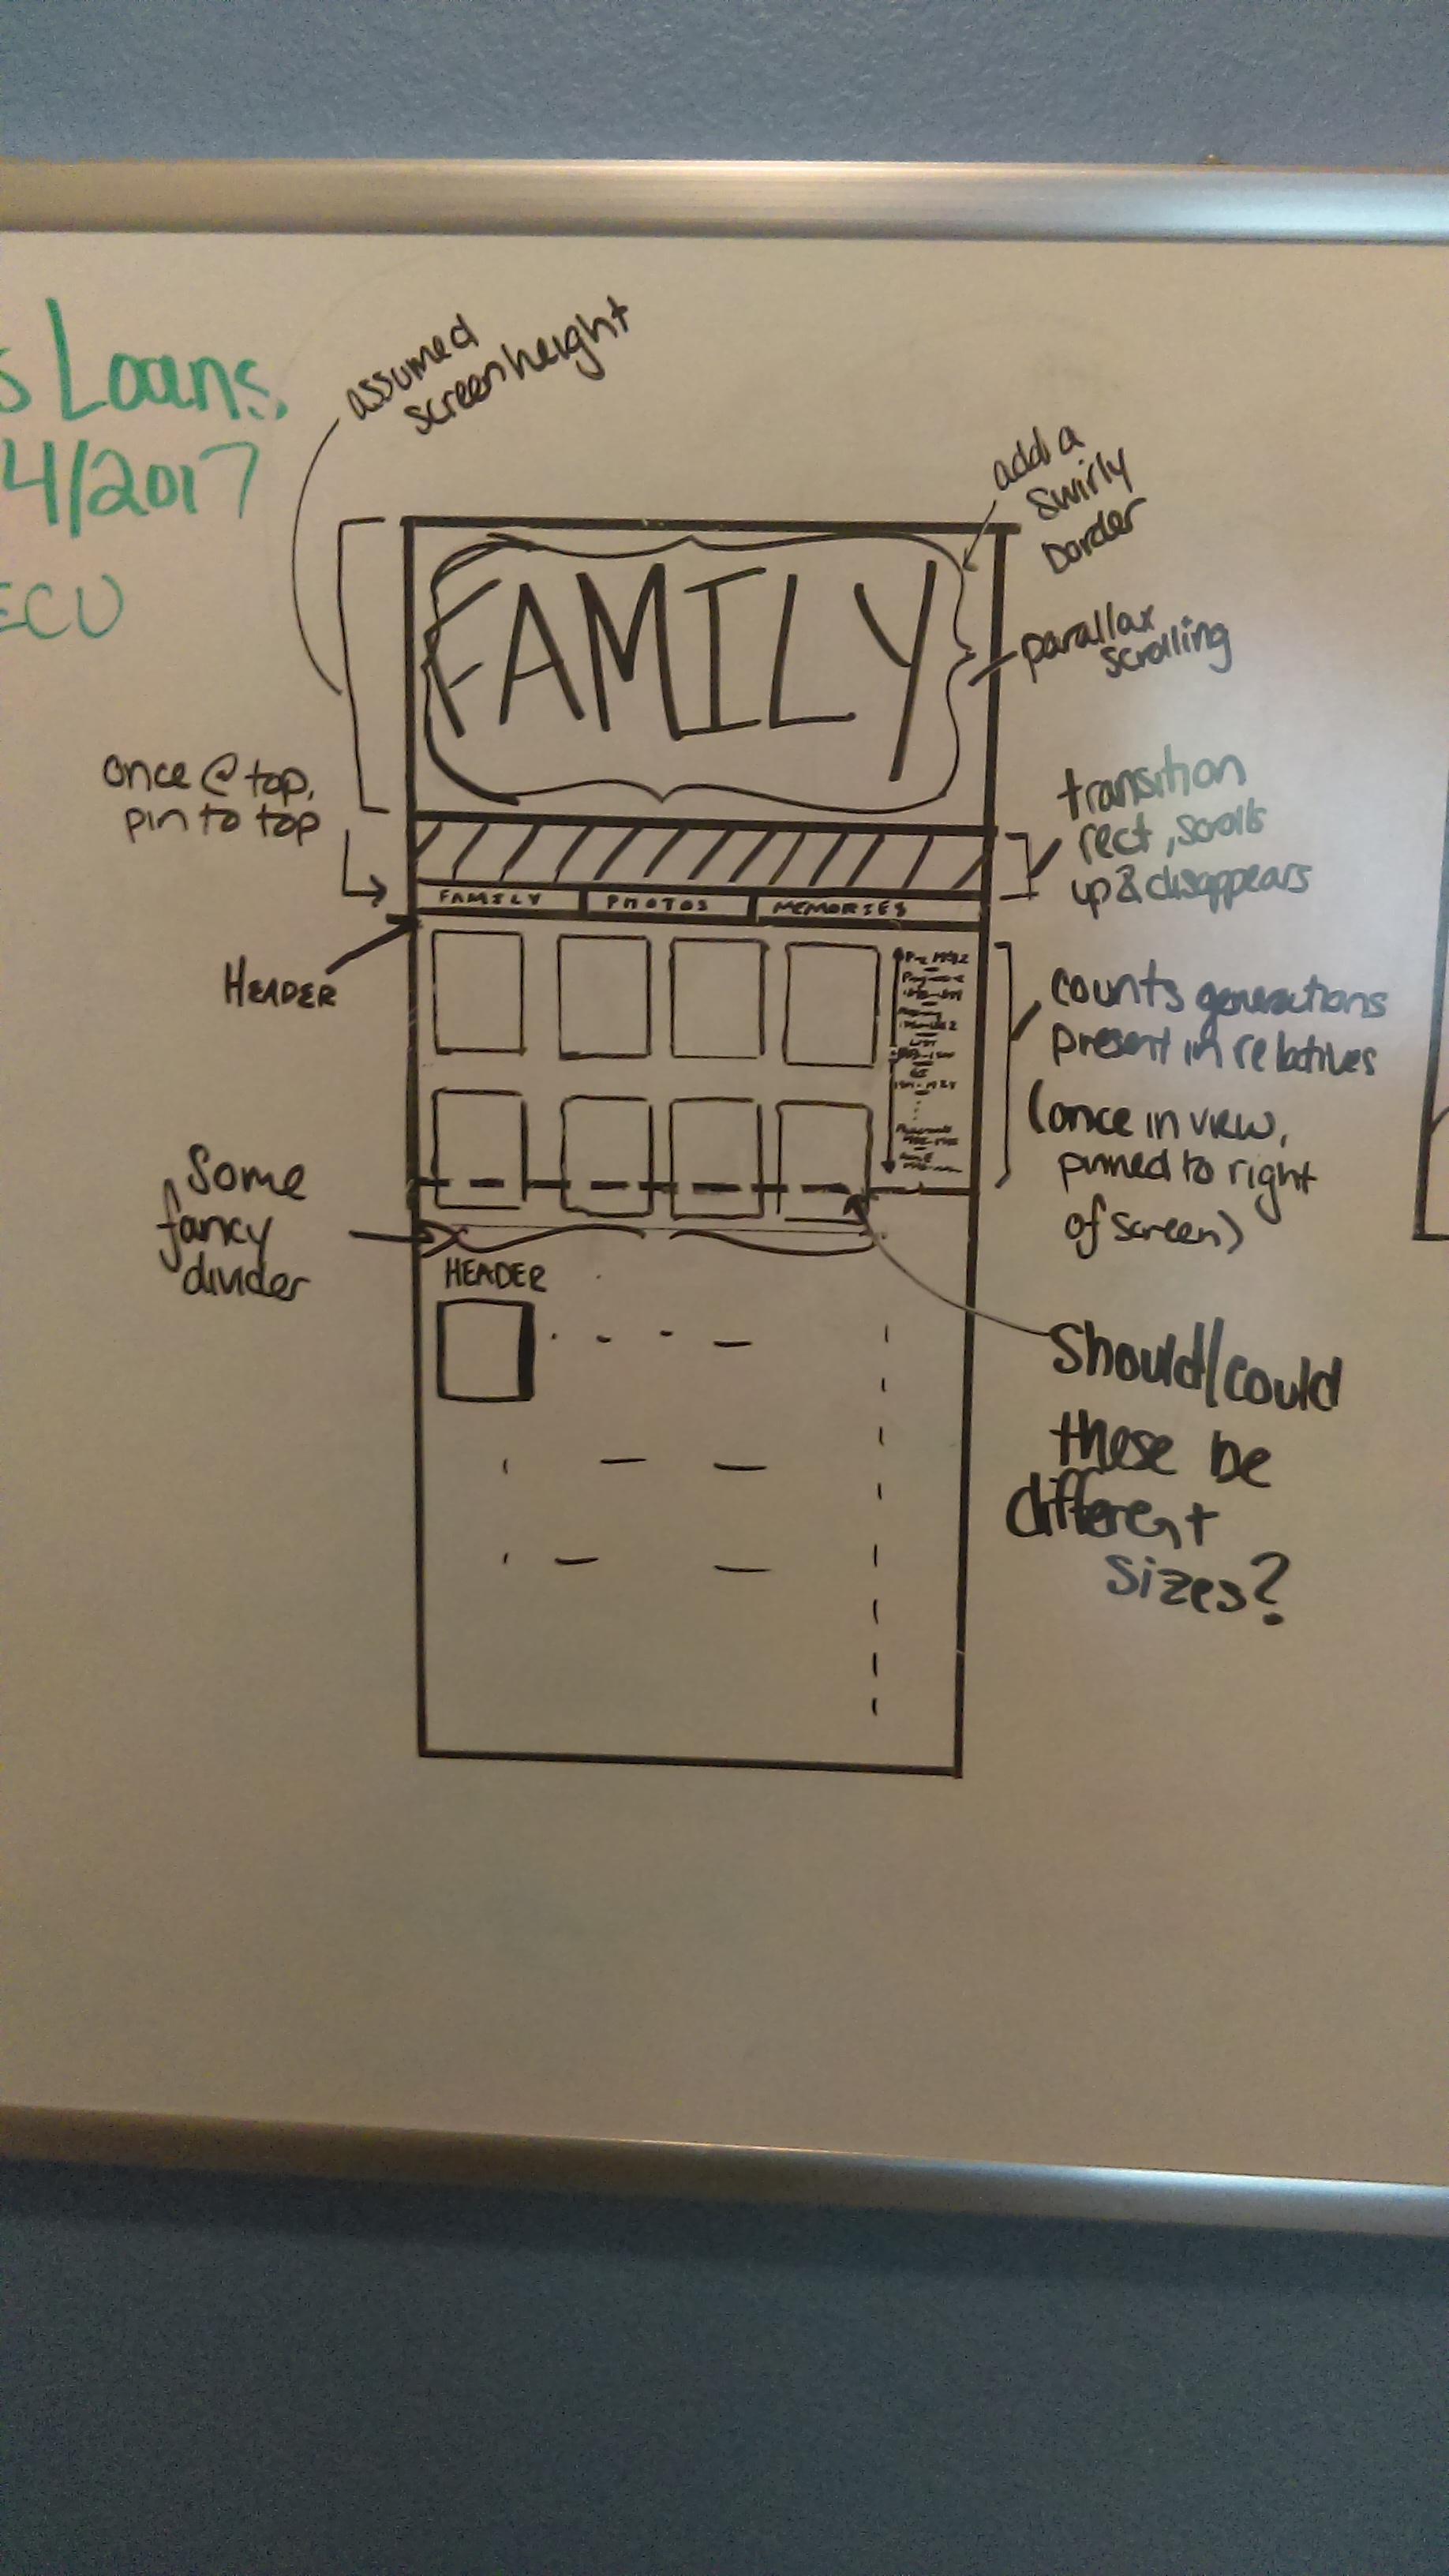 s Loans.
4/2017
ECU
assumed
screen height
add a
swirly
border
FAMILY
parallax
scrolling
once @ top,
pin to top
transition
rect, scrolls
up & disappears
FAMILY PHOTOS MEMORIES
HEADER
counts generations
present in relatives
(once in view,
pinned to right
of screen)
Some
fancy
divider
HEADER
Should/could
these be
different
sizes?